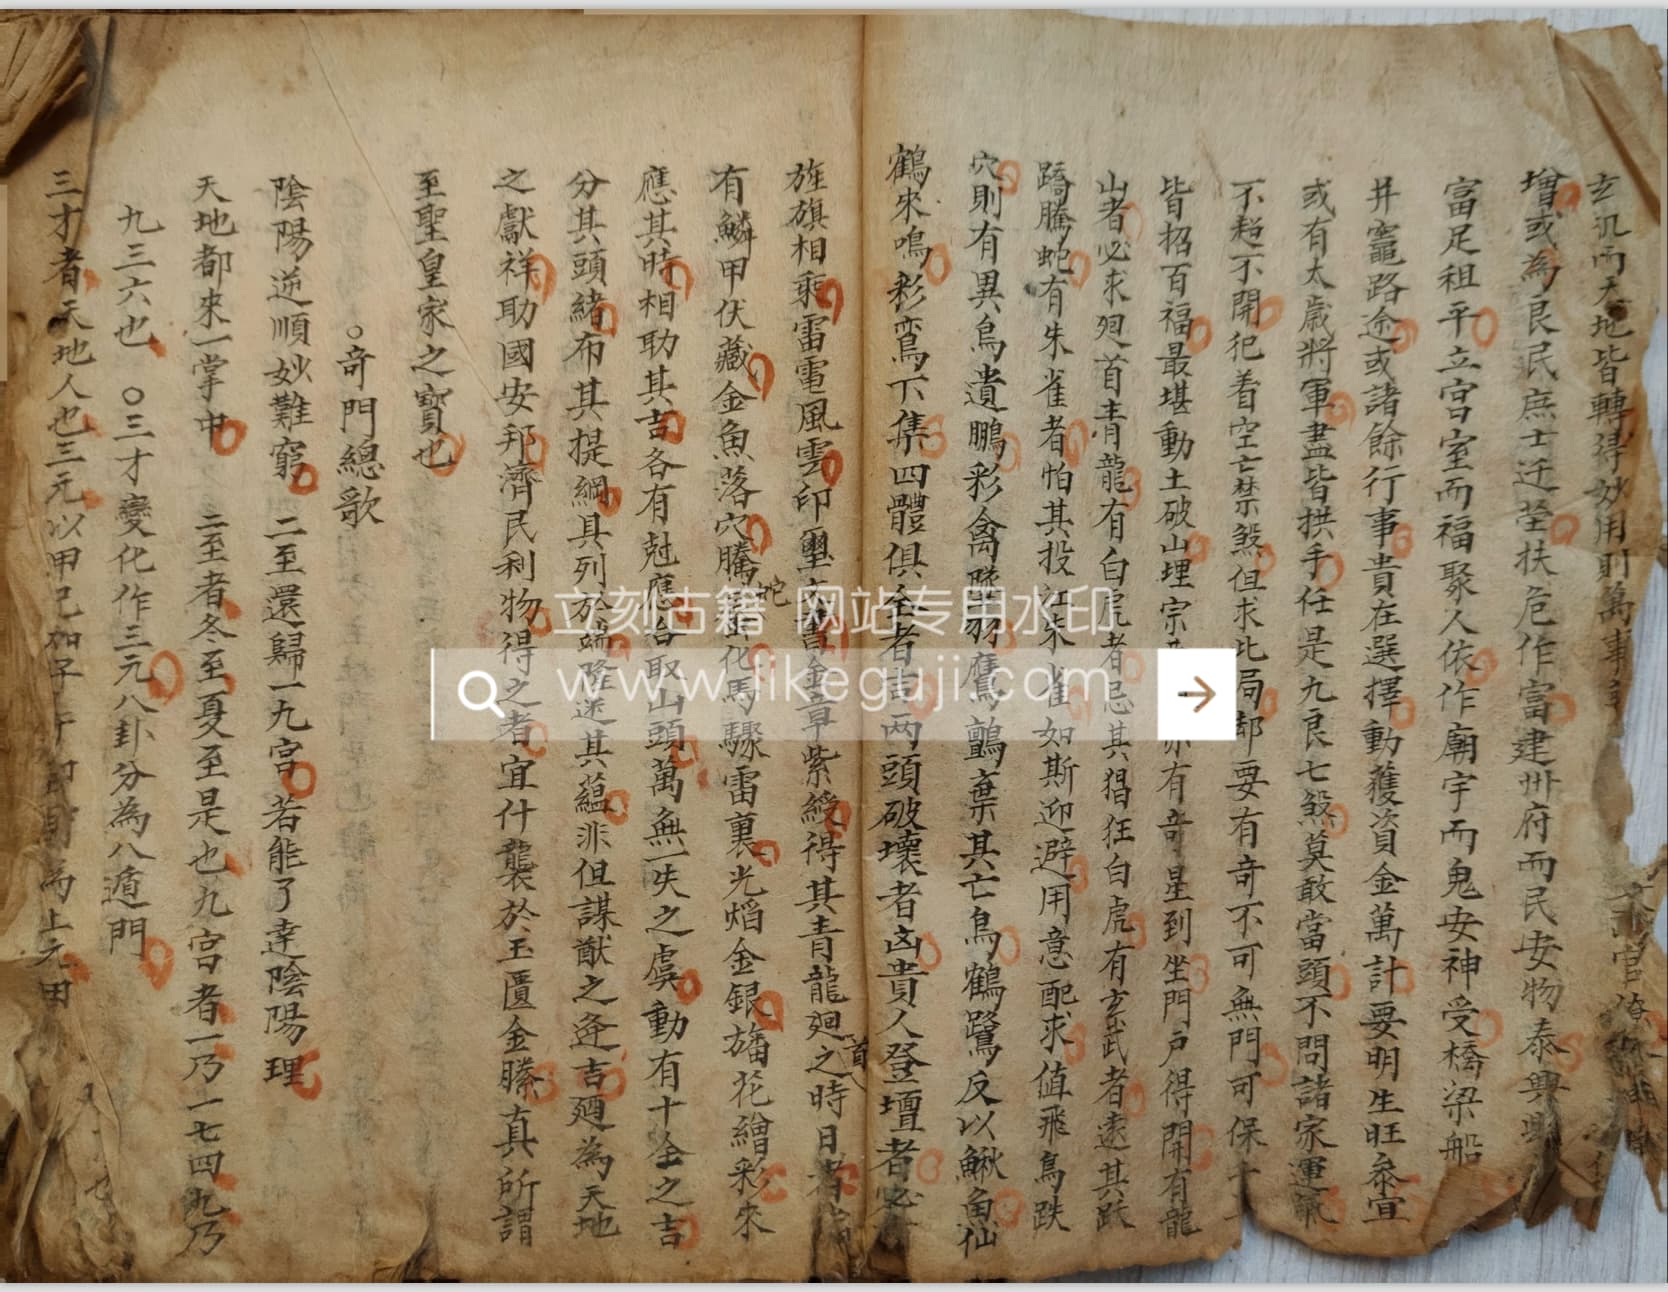 玄汎而天地皆轉得妙用則萬事
增或為良民庶士迁茔扶危作富建州府而民安物泰興
富足祖平立宫室而福聚人依作廟宇而鬼安神受橋梁船
井竈路途或諸餘行事貴在選擇動獲資金萬計要明生旺叅宜
或有太歲將軍盡皆拱手任是九良七煞莫敢當頭不問諸家運氣
不超不開犯着空亡禁煞但求此局都要有奇不可無門可保十
皆招百福最堪動土破山埋宗 有奇星到坐門戸得開有龍
山者必求廻首青龍有白虎者忌其猖狂白虎有玄武者逺其跃
蹻騰蛇有朱雀者怕其投江朱雀如斯迎避用意配求值飛鳥跌
穴則有異鳥遺鵬彩禽 羽鷹鸇棄其亡鳥鶴鷺反以鰍魚仙
鶴來鳴彩鸞下集四體俱全者吉两頭破壞者凶貴人登壇者必
旌旗相乘雷電風雲印璽 金章紫綬得其青龍廻首之時日者
有鱗甲伏藏金魚落穴騰蛇 化馬驟雷裏光焰金銀旛花繒彩來
應其時相助其吉各有尅應 取山頭萬無一失之虞動有十全之吉
分其頭緒布其提綱具列於 隆遂其藴非但謀猷之迯吉廼為天地
之獻祥助國安邦濟民利物得之者宜什襲於玉匱金縢真所謂
至聖皇家之寶也
○奇門總歌
陰陽逆順妙難窮 二至還歸一九宫 若能了達陰陽理
天地都來一掌中 二至者冬至夏至是也九宫者一乃一七四九乃
九三六也 ○三才變化作三元八卦分為八遁門
三才者天地人也三元以甲己加子午 為上元田
立刻古籍 网站专用水印
www.likeguji.com